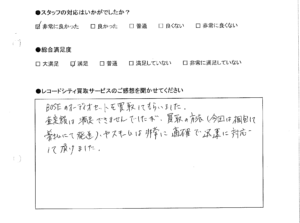 ●スタッフの対応はいかがでしたか?
☑非常に良かった □良かった □普通 □良くない □非常に良くない
●総合満足度
□大満足 ☑満足 □普通 □満足していない □非常に満足していない
●レコードシティ買取サービスのご感想を聞かせてください
BOSEのオーディオセットを買取してもらいました。
金額は満足できませんでしたが、買取の方法(今回は梱包して
着払にて発送)、やスタッフは非常に適確で迅速に対応
して頂けました。